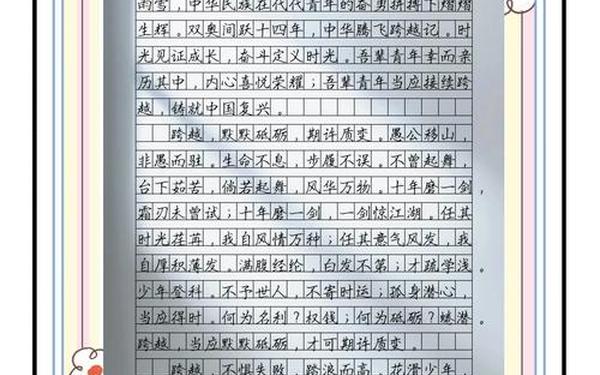 雨雪，中华民族在代代青年的奋勇拼搏下熠熠
生辉。双奥间跃十四年，中华腾飞跨越记。时
光见证成长，奋斗定义时光。吾辈青年幸而亲
历其中，内心喜悦荣耀；吾辈青年当应接续跨
越，铸就中国复兴。
跨越，默默砥砺，期许质变。愚公移山，
非愚而驻。生命不息，步履不误。不曾起舞，
台下茹苦，倘若起舞，风华万物。十年磨一剑，
霜刃未曾试；十年磨一剑，一剑惊江湖。任其
时光荏苒，我自风情万种；任其意气风发，我
自厚积薄发。满腹经纶，白发不第；才疏学浅。
少年登科。不予世人，不寄时运；孤身潜心，
当应得时。何为名利？权钱；何为砥砺？蟠潜。
跨越，当应默默砥砺，才可期许质变。
跨越，不惧失败，跨浪而高。花滑少年，